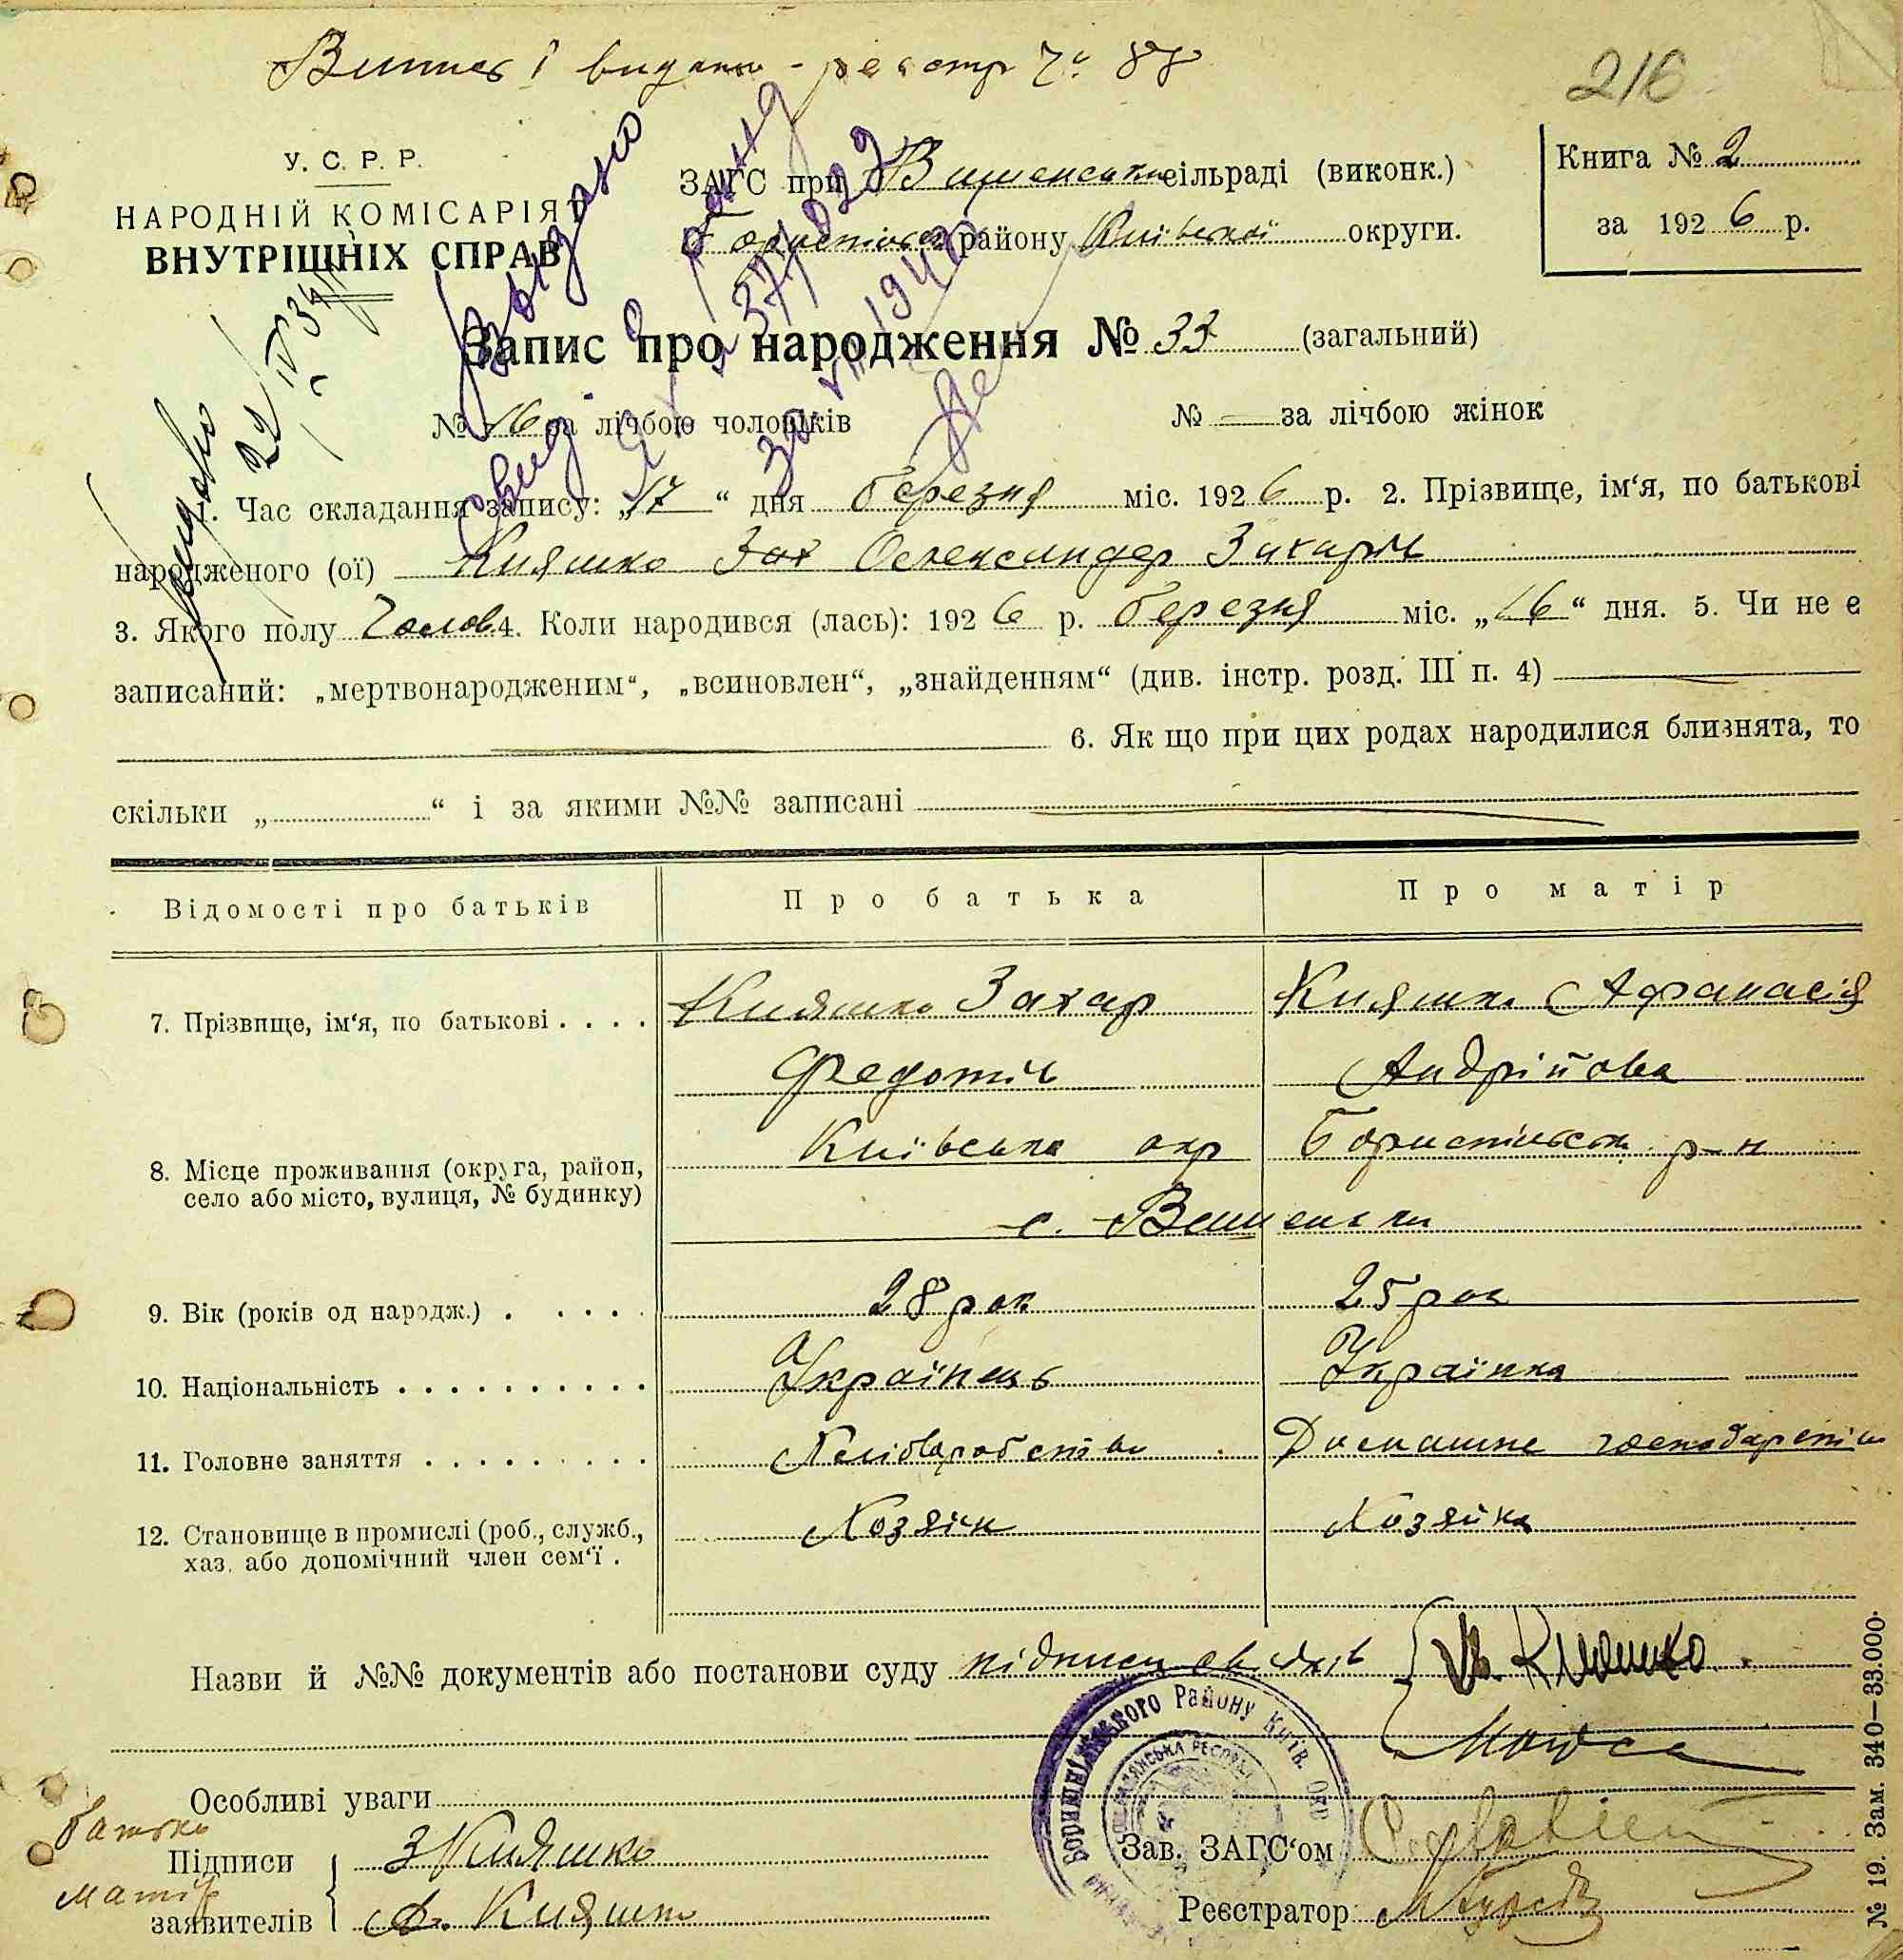 Випис і видано - реєстр ч. 88
216
У. С. Р. Р.
НАРОДНІЙ КОМІСАРІЯТ
ВНУТРІШНІХ СПРАВ
ЗАГС при Вишеньській сільраді (виконк.)
району Київської округи.
Книга № 2
за 1926 р.
Видано
Запис про народження № 33 (загальний)
№ 16 за лічбою чоловіків № — за лічбою жінок
1. Час складання запису: „17“ дня березня міс. 1926 р. 2. Прізвище, ім‘я, по батькові
народженого (ої) Княшко Зах Олександер Захарів
3. Якого полу Чолов. 4. Коли народився (лась): 1926 р. березня міс. „16“ дня. 5. Чи не є
записаний: „мертвонародженим“, „всиновлен“, „знайденням“ (див. інстр. розд. III п. 4)
6. Як що при цих родах народилися близнята, то
скільки „ “ і за якими №№ записані
Відомості про батьків Про батька Про матір
7. Прізвище, ім‘я, по батькові . . . . Княшко Захар Княшко Афанасія
Федотів Андрійова
8. Місце проживання (округа, район, Київська окр Бориспільськ. р-н
село або місто, вулиця, № будинку)
с. Вишеньки
9. Вік (років од народж.) . . . . . 28 рок 25 рок
10. Національність . . . . . . . . . . . Українець Українка
11. Головне заняття . . . . . . . . . . Хліборобство Домашнє господарство
12. Становище в промислі (роб., служб., Хозяїн Хозяйка
хаз. або допомічний член сем‘ї .
Назви й №№ документів або постанови суду підписи свідків
Особливі уваги
Батько
Підписи З Княшко
Зав. ЗАГС‘ом
матір
заявителів А. Княшко
Реєстратор
№ 19. Зам. 340—33.000.